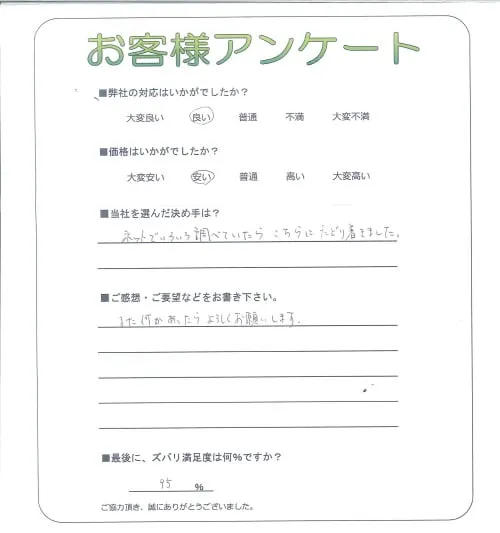 お客様アンケート
■弊社の対応はいかがでしたか？
大変良い 良い 普通 不満 大変不満
■価格はいかがでしたか？
大変安い 安い 普通 高い 大変高い
■当社を選んだ決め手は？
ネットでいろいろ調べていたら こちらに たどり着きました。
■ご感想・ご要望などをお書き下さい。
また何かあったら よろしくお願いします。
■最後に、ズバリ満足度は何%ですか？
95 %
ご協力頂き、誠にありがとうございました。